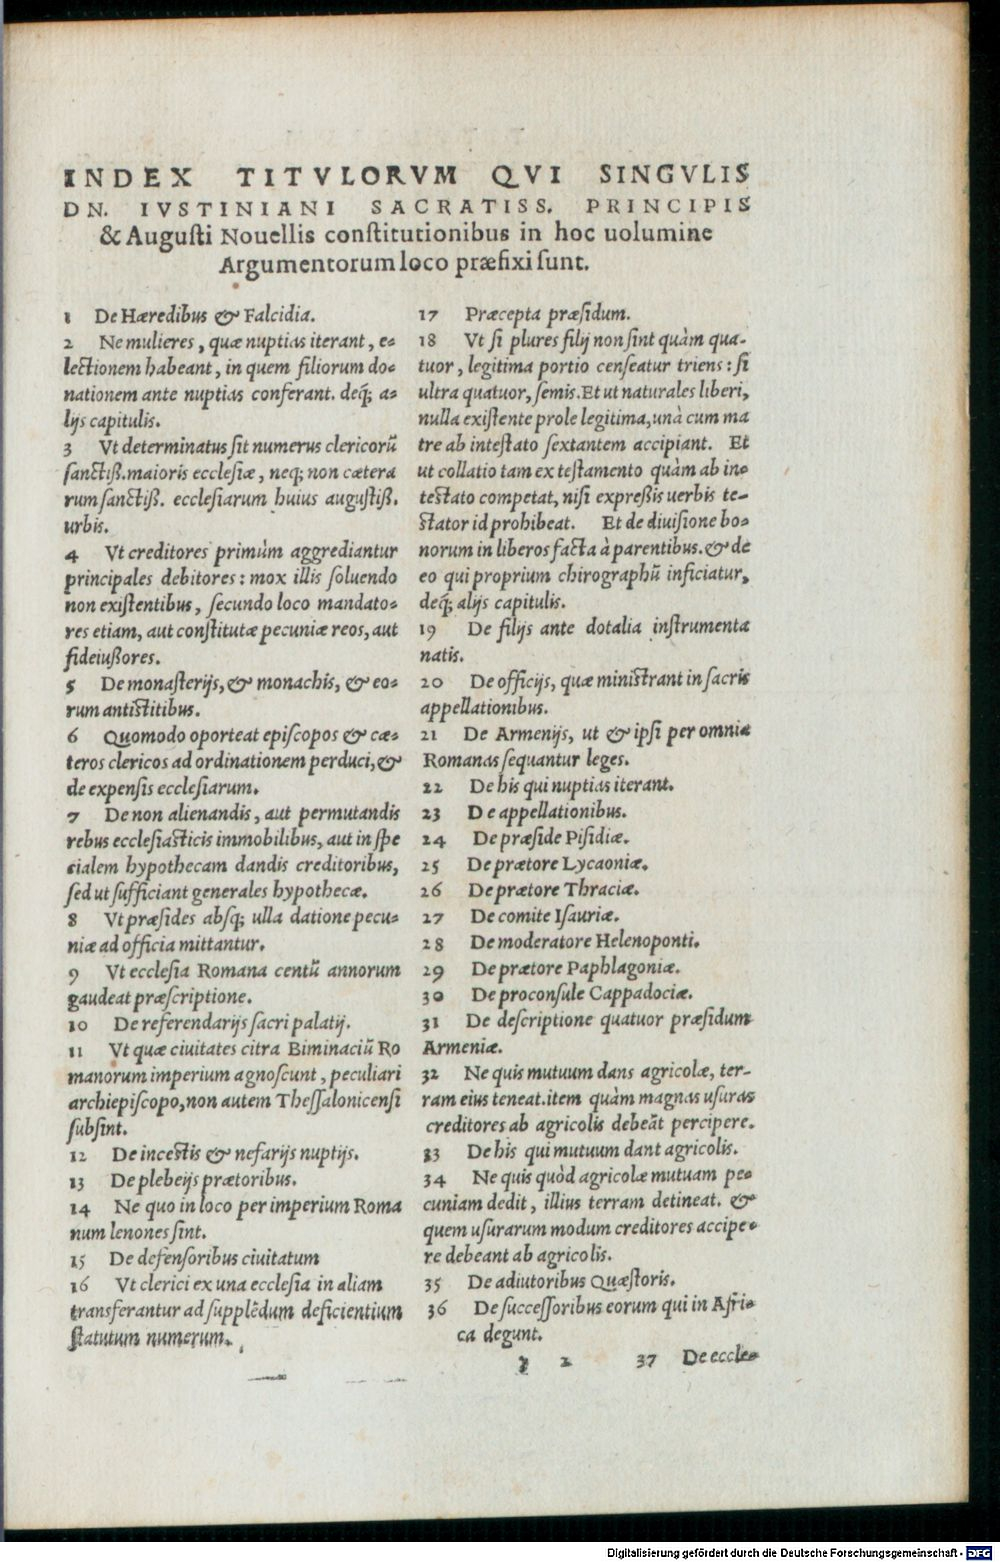 INDEX TITVLORVM QVI SINGVLIS
DN. IVSTINIANI SACRATISS. PRINCIPIS
& Augusti Nouellis constitutionibus in hoc uolumine
Argumentorum loco præfixi sunt.
1 De Hæredibus & Falcidia.
2 Ne mulieres, quæ nuptias iterant, e-
lectionem habeant, in quem filiorum do-
nationem ante nuptias conferant. deq́; a-
lijs capitulis.
3 Vt determinatus sit numerus clericorũ
sanctiß. maioris ecclesiæ, neq; non cætera
rum sanctiß. ecclesiarum huius augustiß.
urbis.
4 Vt creditores primùm aggrediantur
principales debitores: mox illis soluendo
non existentibus, secundo loco mandato-
res etiam, aut constitutæ pecuniæ reos, aut
fideiußores.
5 De monasterijs, & monachis, & eo-
rum antistitibus.
6 Quomodo oporteat episcopos & cæ-
teros clericos ad ordinationem perduci, &
de expensis ecclesiarum.
7 De non alienandis, aut permutandis
rebus ecclesiasticis immobilibus, aut in spe
cialem hypothecam dandis creditoribus,
sed ut sufficiant generales hypothecæ.
8 Vt præsides absq; ulla datione pecu-
niæ ad officia mittantur.
9 Vt ecclesia Romana centũ annorum
gaudeat præscriptione.
10 De referendarijs sacri palatij.
11 Vt quæ ciuitates citra Biminaciũ Ro
manorum imperium agnoscunt, peculiari
archiepiscopo, non autem Thessalonicensi
subsint.
12 De incestis & nefarijs nuptijs.
13 De plebeijs prætoribus.
14 Ne quo in loco per imperium Roma
num lenones sint.
15 De defensoribus ciuitatum
16 Vt clerici ex una ecclesia in aliam
transferantur ad supplẽdum deficientium
statutum numerum.
17 Præcepta præsidum.
18 Vt si plures filij non sint quàm qua-
tuor, legitima portio censeatur triens: si
ultra quatuor, semis. Et ut naturales liberi,
nulla existente prole legitima, unà cum ma
tre ab intestato sextantem accipiant. Et
ut collatio tam ex testamento quàm ab in-
testato competat, nisi expreßis uerbis te-
stator id prohibeat. Et de diuisione bo-
norum in liberos facta à parentibus. & de
eo qui proprium chirographũ inficiatur,
deq́; alijs capitulis.
19 De filijs ante dotalia instrumenta
natis.
20 De officijs, quæ ministrant in sacris
appellationibus.
21 De Armenijs, ut & ipsi per omnia
Romanas sequantur leges.
22 De his qui nuptias iterant.
23 De appellationibus.
24 De præside Pisidiæ.
25 De prætore Lycaoniæ.
26 De prætore Thraciæ.
27 De comite Isauriæ.
28 De moderatore Helenoponti.
29 De prætore Paphlagoniæ.
30 De proconsule Cappadociæ.
31 De descriptione quatuor præsidum
Armeniæ.
32 Ne quis mutuum dans agricolæ, ter-
ram eius teneat. item quàm magnas usuras
creditores ab agricolis debeãt percipere.
33 De his qui mutuum dant agricolis.
34 Ne quis quòd agricolæ mutuam pe-
cuniam dedit, illius terram detineat. &
quem usurarum modum creditores accipe-
re debeant ab agricolis.
35 De adiutoribus Quæstoris.
36 De successoribus eorum qui in Afri-
ca degunt.
2 37 De eccle-
Digitalisierung gefördert durch die Deutsche Forschungsgemeinschaft - DFG